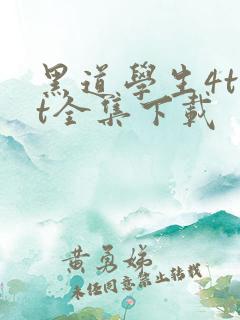 黑道學生4t
t全集下載
黄勇娣
未经同意禁止转载